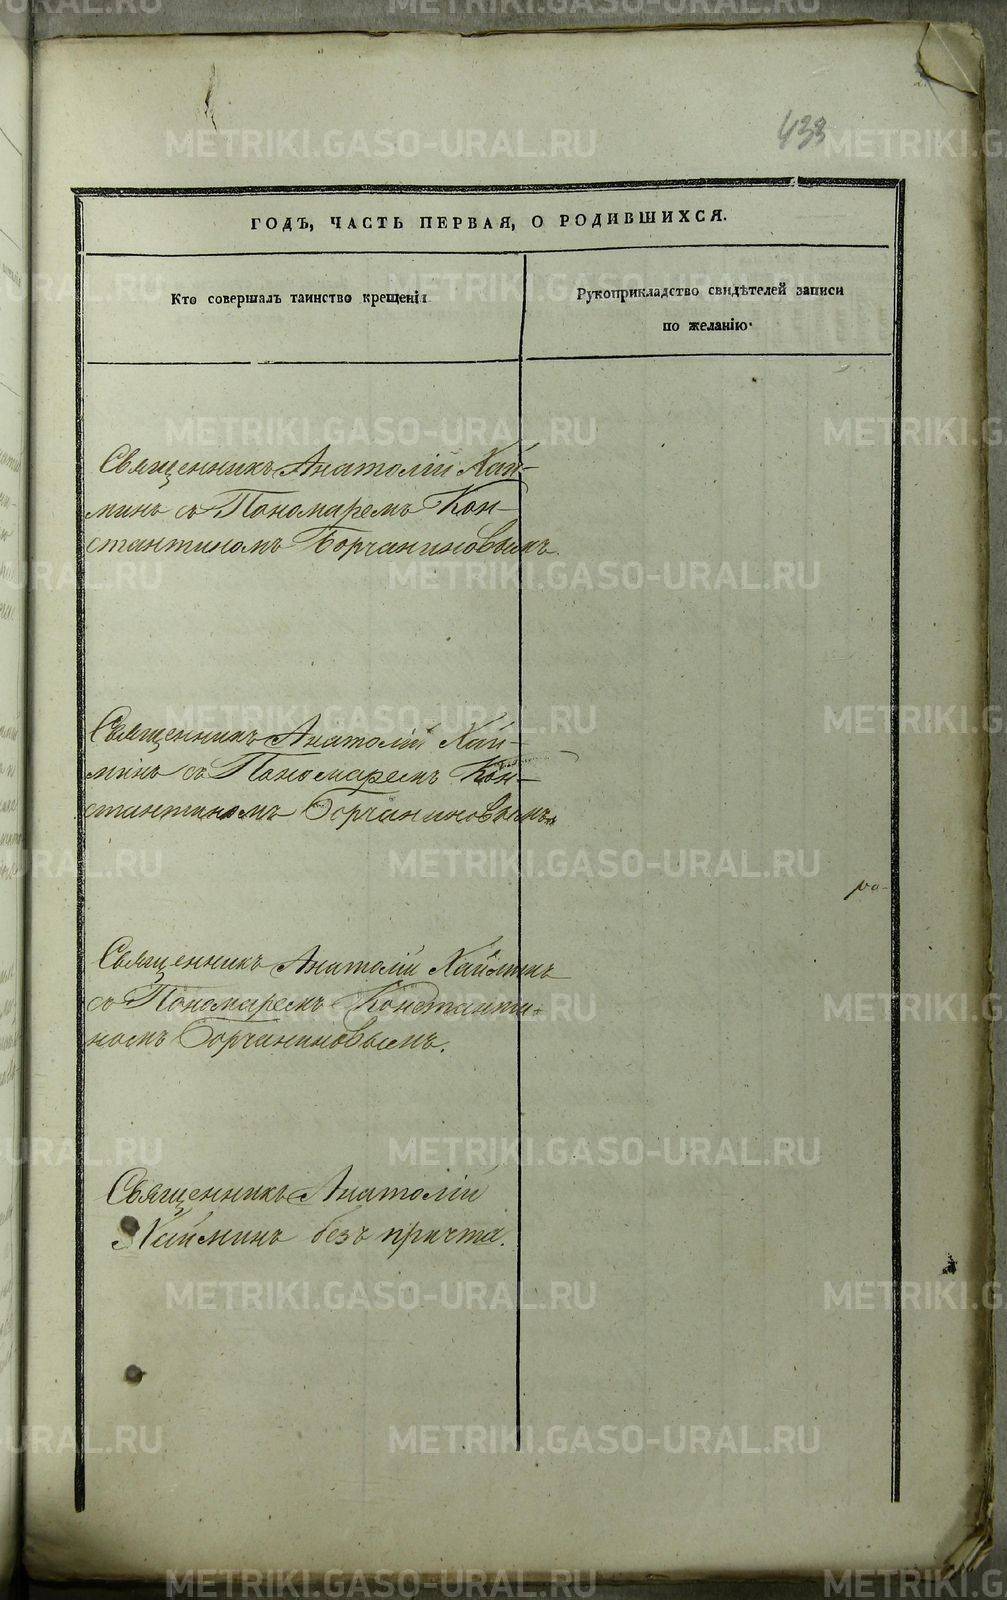 433
ГОДЪ, ЧАСТЬ ПЕРВАЯ, О РОДИВШИХСЯ.
Кто совершалъ таинство крещенія
Рукоприкладство свидѣтелей записи
по желанію.
Священникъ Анатолій Хай-
минъ съ Пономаремъ Кон-
стантиномъ Борчаниновымъ.
Священникъ Анатолій Хай-
минъ съ Пономаремъ Кон-
стантиномъ Борчаниновымъ.
Священникъ Анатолій Хайминъ
съ Пономаремъ Константи-
номъ Борчаниновымъ.
Священникъ Анатолій
Хайминъ безъ причта.
METRIKI.GASO-URAL.RU